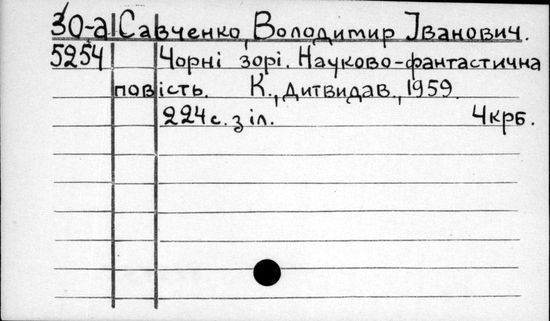 30-а Савченко, Володимир Іванович.
5254 Чорні зорі. Науково-фантастична
повість. К., Дитвидав., 1959.
224 с. з іл. 4 крб.